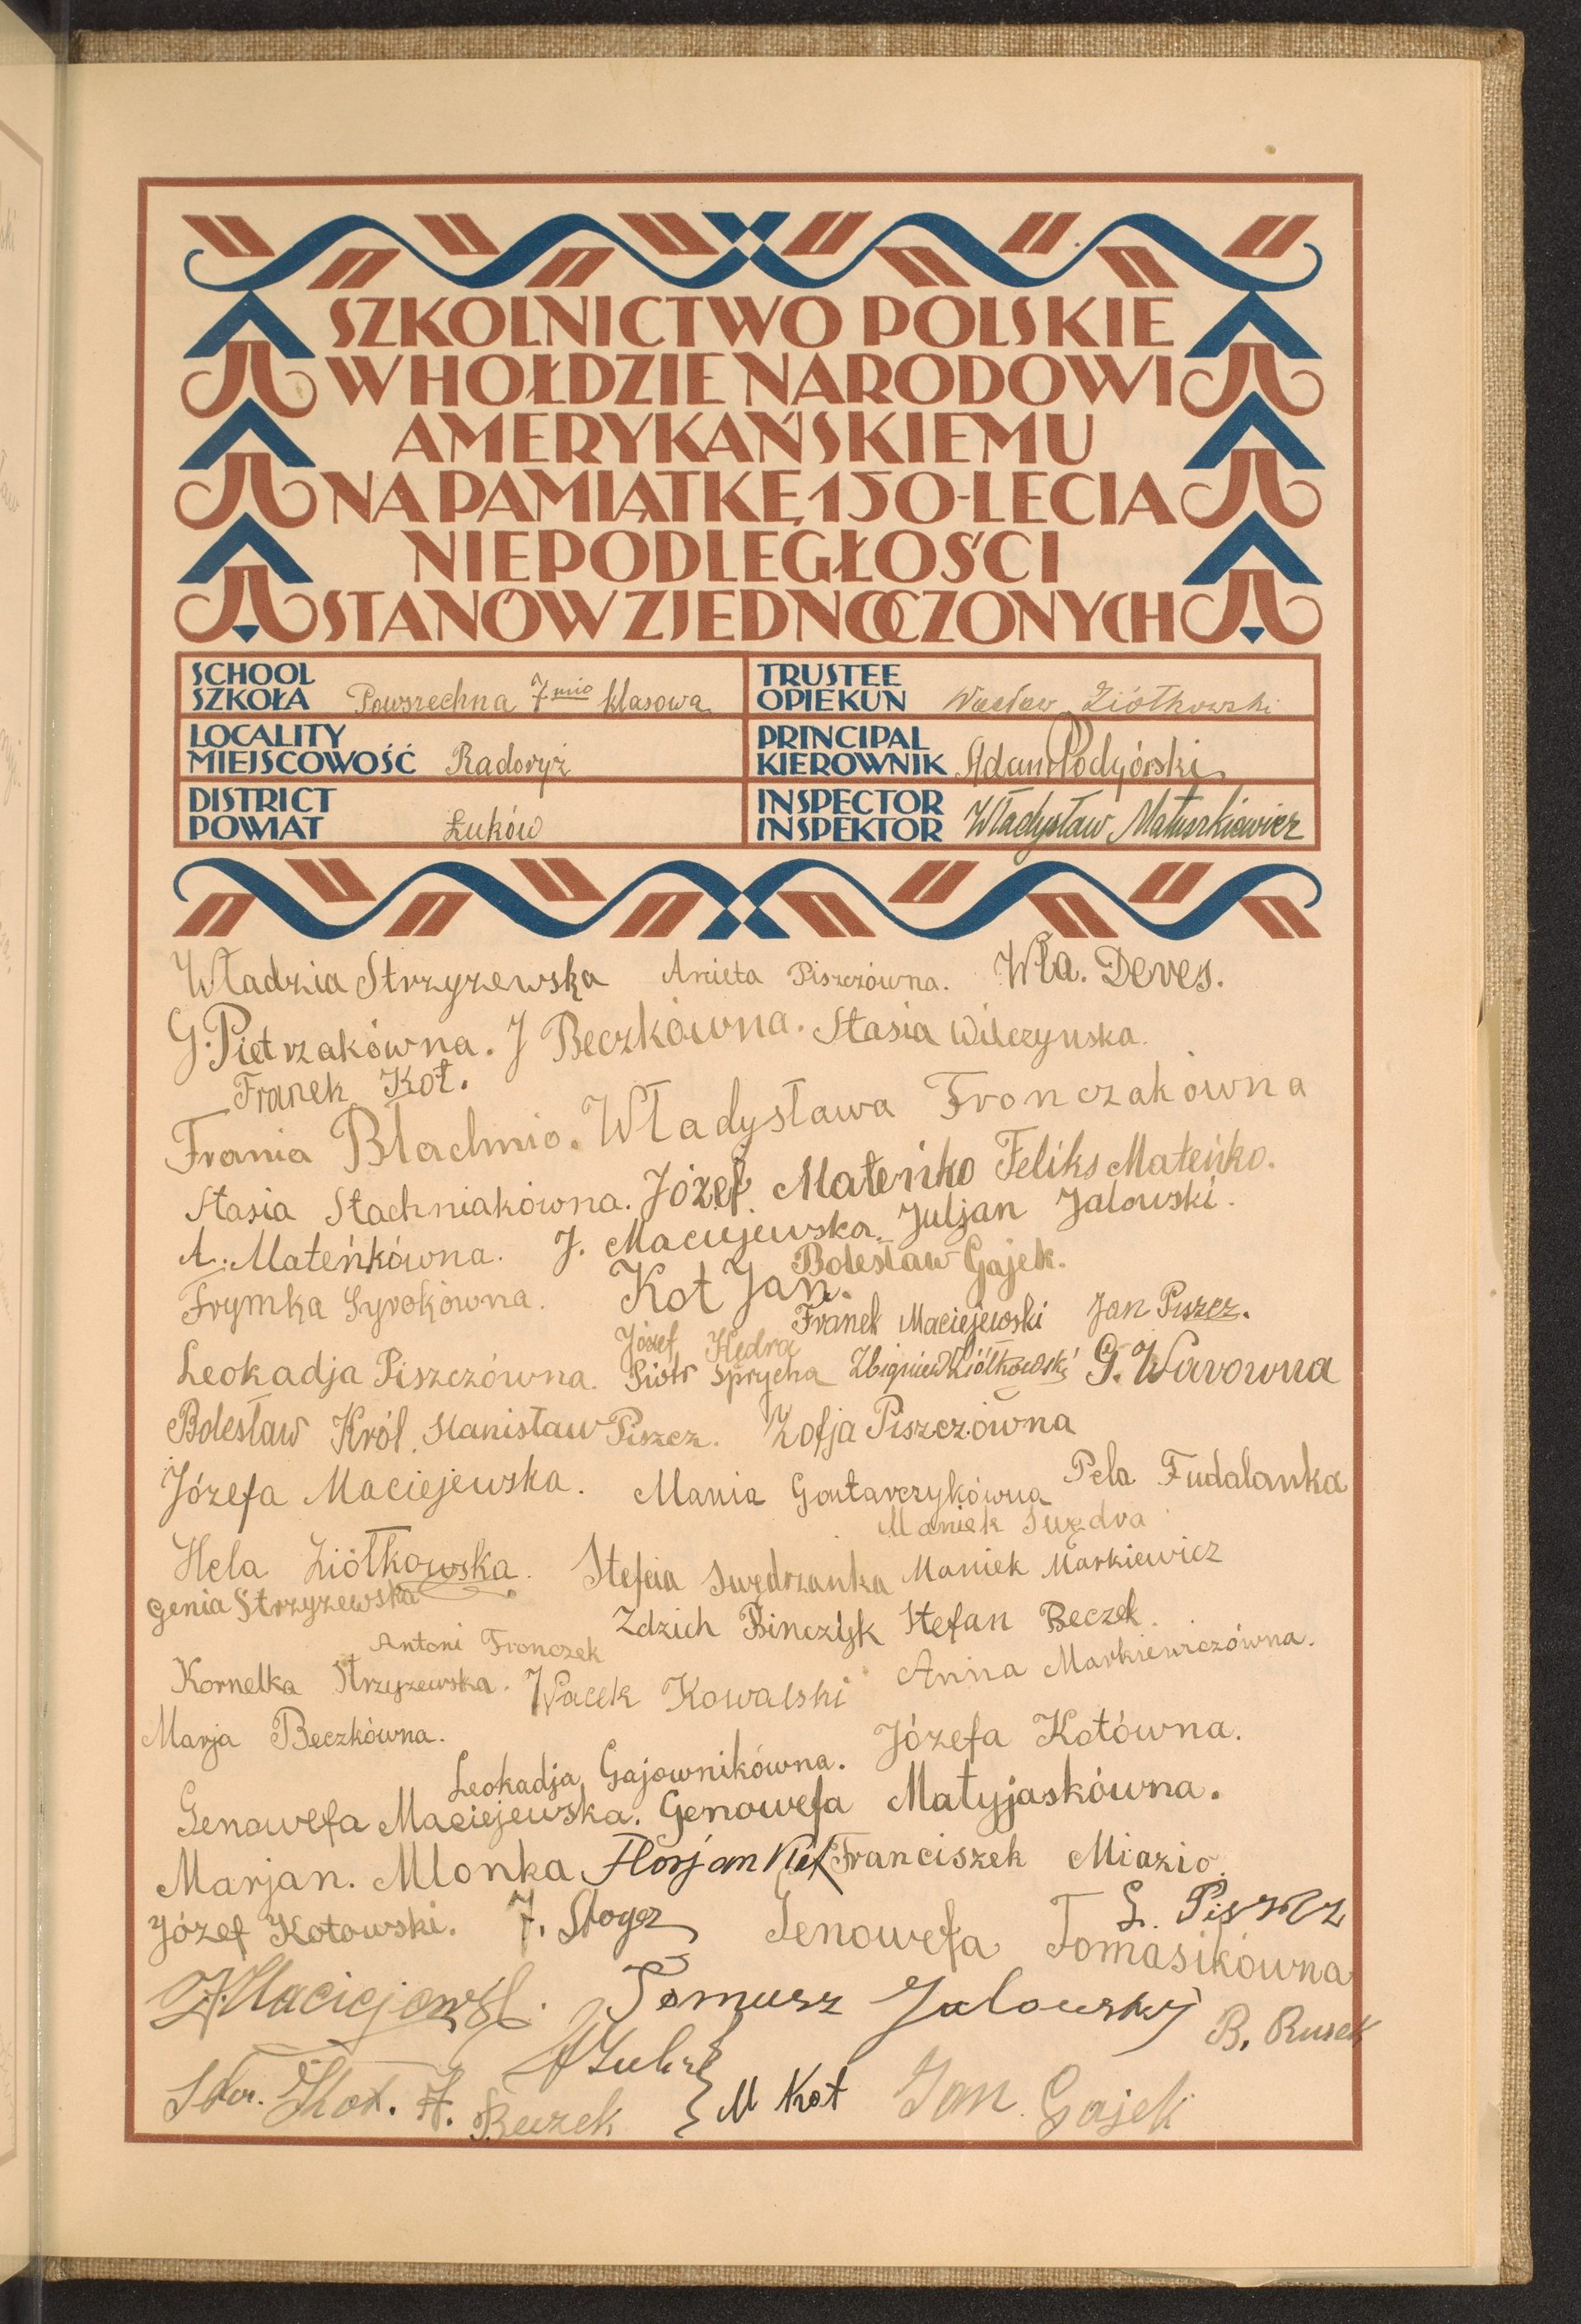 SZKOLNICTWO POLSKIE
W HOŁDZIE NARODOWI
AMERYKAŃSKIEMU
NA PAMIĄTKĘ 150-LECIA
NIEPODLEGŁOŚCI
STANÓW ZJEDNOCZONYCH
SCHOOL
SZKOŁA Powszechna 7mio klasowa
TRUSTEE
OPIEKUN Wacław Ziółkowski
LOCALITY
MIEJSCOWOŚĆ Radoryż
PRINCIPAL
KIEROWNIK Adam Podgórski
DISTRICT
POWIAT Łuków
INSPECTOR
INSPEKTOR Władysław Matuszkiewicz
Władzia Strzyzewska Anieta Piszczówna. Wła. Deves.
G. Pietrzakówna. J Beczkówna. Stasia Wilczynska.
Franek Kot.
Frania Błachnio. Władysława Fronczakówna
Stasia Stachniakówna. Józef. Mateńko Feliks Mateńko.
A. Mateńkówna. J. Maciejewska. Juljan Jalowski.
Bolesław Gajek.
Frymka Syrokówna. Kot Jan.
Franek Maciejewski Jan Piszcz.
Józef Kędra
Leokadja Piszczówna. Piotr Sprycha Zbigniew Ziółkowski G. Wavowna
Bolesław Król. Stanisław Piszcz. Zofja Piszczówna
Józefa Maciejewska. Mania Gontarczykówna Pela Fudalanka
Maniek Swędra
Hela Ziółkowska. Stefcia Swędrzanka Maniek Markiewicz
Genia Strzyzewska
Zdzich Binczyk Stefan Beczek.
Antoni Fronczek
Kornelka Strzyzewska. Wacek Kowalski Anna Markiewiczówna.
Marja Beczkówna.
Leokadja Gajownikówna. Józefa Kotówna.
Genowefa Maciejewska. Genowefa Matyjaskówna.
Marjan. Mlonka Florjan Franciszek Miazio.
Józef Kotowski. S. Piszcz
Genowefa Tomasikówna
Tomusz Jalowski B. Rusek
Kot. M Kot Jan Gajek